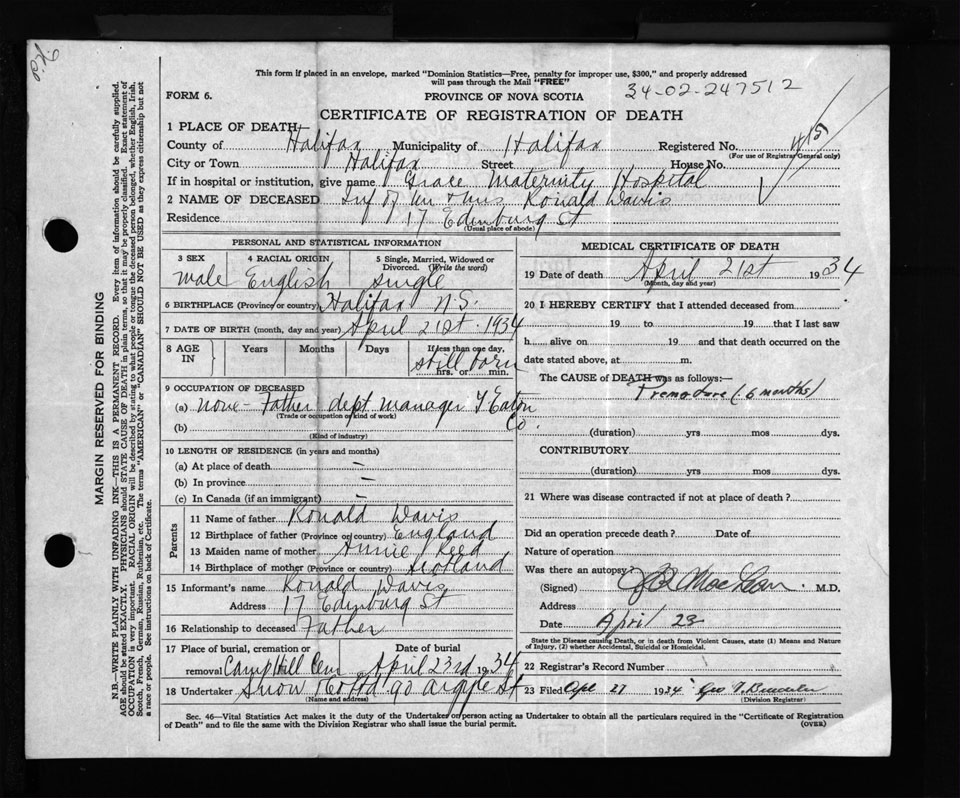 This form if placed in an envelope, marked "Dominion Statistics—Free, penalty for improper use, $300," and properly addressed
will pass through the Mail "FREE"
34-02-247512
FORM 6.
PROVINCE OF NOVA SCOTIA
CERTIFICATE OF REGISTRATION OF DEATH
1 PLACE OF DEATH—
County of Halifax Municipality of Halifax Registered No. 415
(For use of Registrar General only)
City or Town Halifax Street House No.
If in hospital or institution, give name Grace Maternity Hospital
2 NAME OF DECEASED Inf of Mr & Mrs Ronald Davis
Residence 17 Edinburg St
(Usual place of abode)
PERSONAL AND STATISTICAL INFORMATION
3 SEX 4 RACIAL ORIGIN 5 Single, Married, Widowed or Divorced. (Write the word)
male English single
6 BIRTHPLACE (Province or country) Halifax N.S.
7 DATE OF BIRTH (month, day and year) April 21st 1934
8 AGE IN Years Months Days If less than one day,
still born
hrs. or min.
9 OCCUPATION OF DECEASED
(a) none - Father dept manager T Eaton Co.
(Trade or occupation or kind of work)
(b)
(Kind of industry)
10 LENGTH OF RESIDENCE (in years and months)
(a) At place of death —
(b) In province —
(c) In Canada (if an immigrant) —
Parents
11 Name of father Ronald Davis
12 Birthplace of father (Province or country) England
13 Maiden name of mother Annie Reed
14 Birthplace of mother (Province or country) Scotland
15 Informant's name Ronald Davis
Address 17 Edinburg St
16 Relationship to deceased Father
17 Place of burial, cremation or removal Camp Hill Cem Date of burial April 23rd 1934
18 Undertaker Snow 90 Argyle St
(Name and address)
MEDICAL CERTIFICATE OF DEATH
19 Date of death April 21st 1934
(Month, day and year)
20 I HEREBY CERTIFY that I attended deceased from
19 to 19 that I last saw
h alive on 19 and that death occurred on the
date stated above, at m.
The CAUSE of DEATH was as follows:—
Premature (6 months)
(duration) yrs mos dys.
CONTRIBUTORY
(duration) yrs mos dys.
21 Where was disease contracted if not at place of death ?
Did an operation precede death ? Date of
Nature of operation
Was there an autopsy
(Signed) MacLean M.D.
Address
Date April 23
State the Disease causing Death, or in death from Violent Causes, state (1) Means and Nature
of Injury, (2) whether Accidental, Suicidal or Homicidal.
22 Registrar's Record Number
23 Filed Apr 27 1934 Geo
(Division Registrar)
Sec. 46—Vital Statistics Act makes it the duty of the Undertaker or person acting as Undertaker to obtain all the particulars required in the "Certificate of Registration
of Death" and to file the same with the Division Registrar who shall issue the burial permit.
(OVER)
MARGIN RESERVED FOR BINDING
N.B.—WRITE PLAINLY WITH UNFADING INK—THIS IS A PERMANENT RECORD. Every item of information should be carefully supplied.
AGE should be stated EXACTLY. PHYSICIANS should STATE CAUSE OF DEATH in plain terms, so that it may be properly classified. Exact statement of
OCCUPATION is very important. RACIAL ORIGIN will be described by stating to what people or tongue the deceased person belonged, whether English, Irish,
Scotch, French, German, Russian, Ruthenian, etc. The terms "AMERICAN" or "CANADIAN" SHOULD NOT BE USED as they express citizenship but not
a race or people. See instructions on back of Certificate.